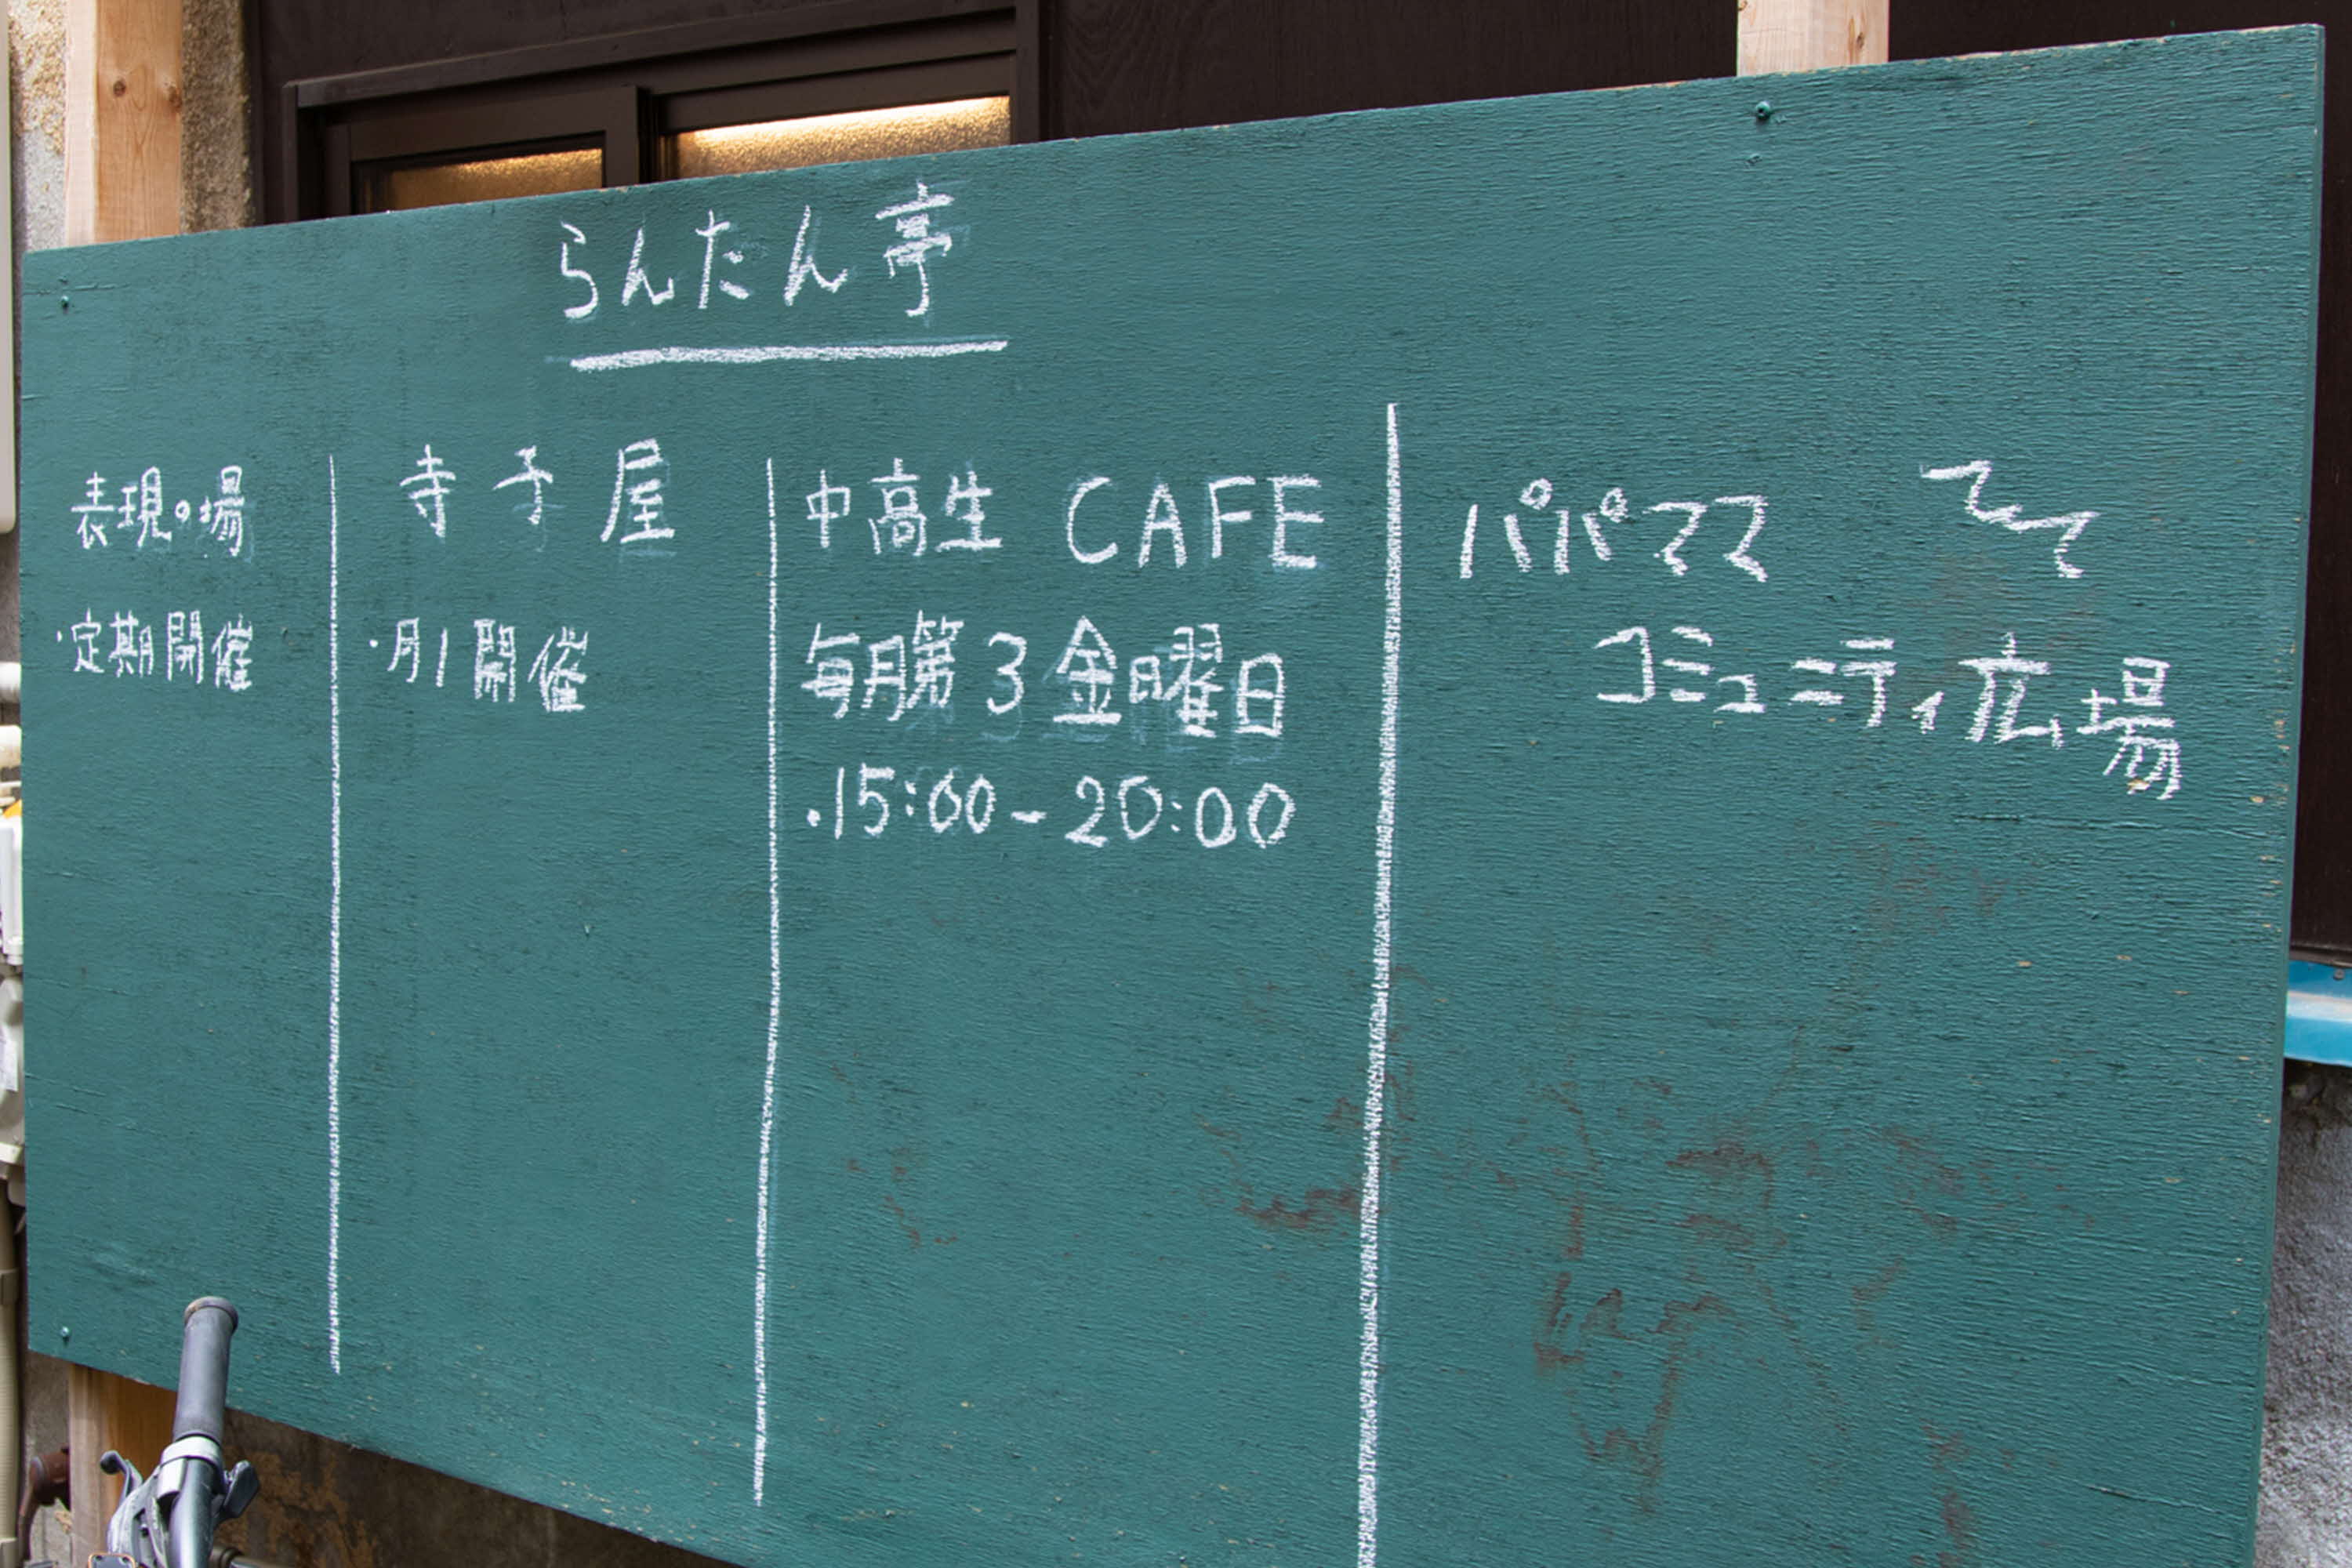 らんたん亭
表現の場
・定期開催
寺子屋
・月1開催
中高生 CAFE
毎月第3金曜日
・15:00-20:00
パパママ
コミュニティ広場